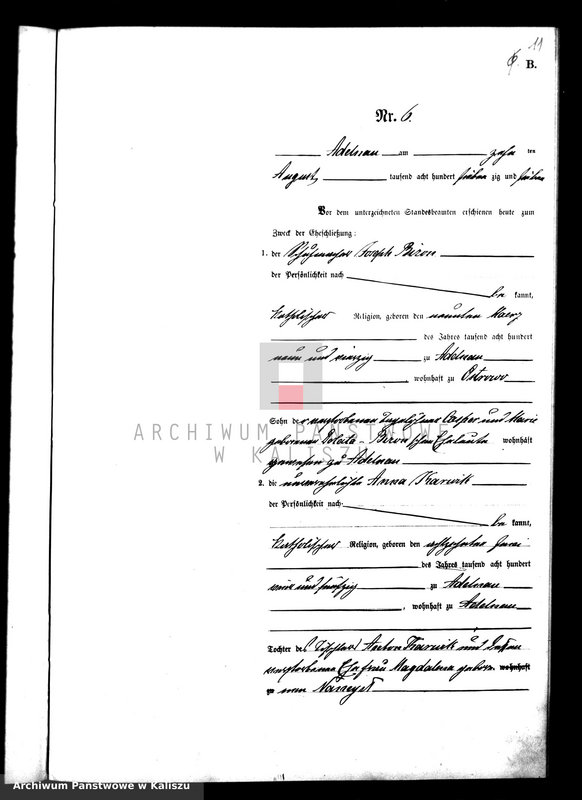 11
6.
B.
Nr. 6.
Adelnau am zehn ten
August tausend acht hundert sieben zig und sieben
Vor dem unterzeichneten Standesbeamten erschienen heute zum
Zweck der Eheschließung:
1. der Schuhmacher Joseph Biron
der Persönlichkeit nach
be kannt,
katholischer Religion, geboren den neunten Maerz
des Jahres tausend acht hundert
neun und vierzig zu Adelnau
, wohnhaft zu Ostrowo
Sohn der verstorbenen Casper und Marie
geborenen Biron'schen Eheleute wohnhaft
gewesen zu Adelnau
2. die unverehelichte Anna Karwik
der Persönlichkeit nach
be kannt,
katholischer Religion, geboren den achtzehnten Juni
des Jahres tausend acht hundert
und fünfzig zu Adelnau
, wohnhaft zu Adelnau
Tochter des Tischlers Anton Karwik und dessen
verstorbenen Ehefrau Magdalena geborenen wohnhaft
zu
ARCHIWUM PAŃSTWOWE
W KALISZU
Archiwum Państwowe w Kaliszu
Archiwum Państwowe w Kaliszu